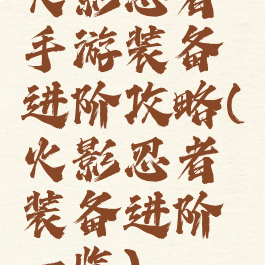 火影忍者
手游装备
进阶攻略(
火影忍者
装备进阶
一览)